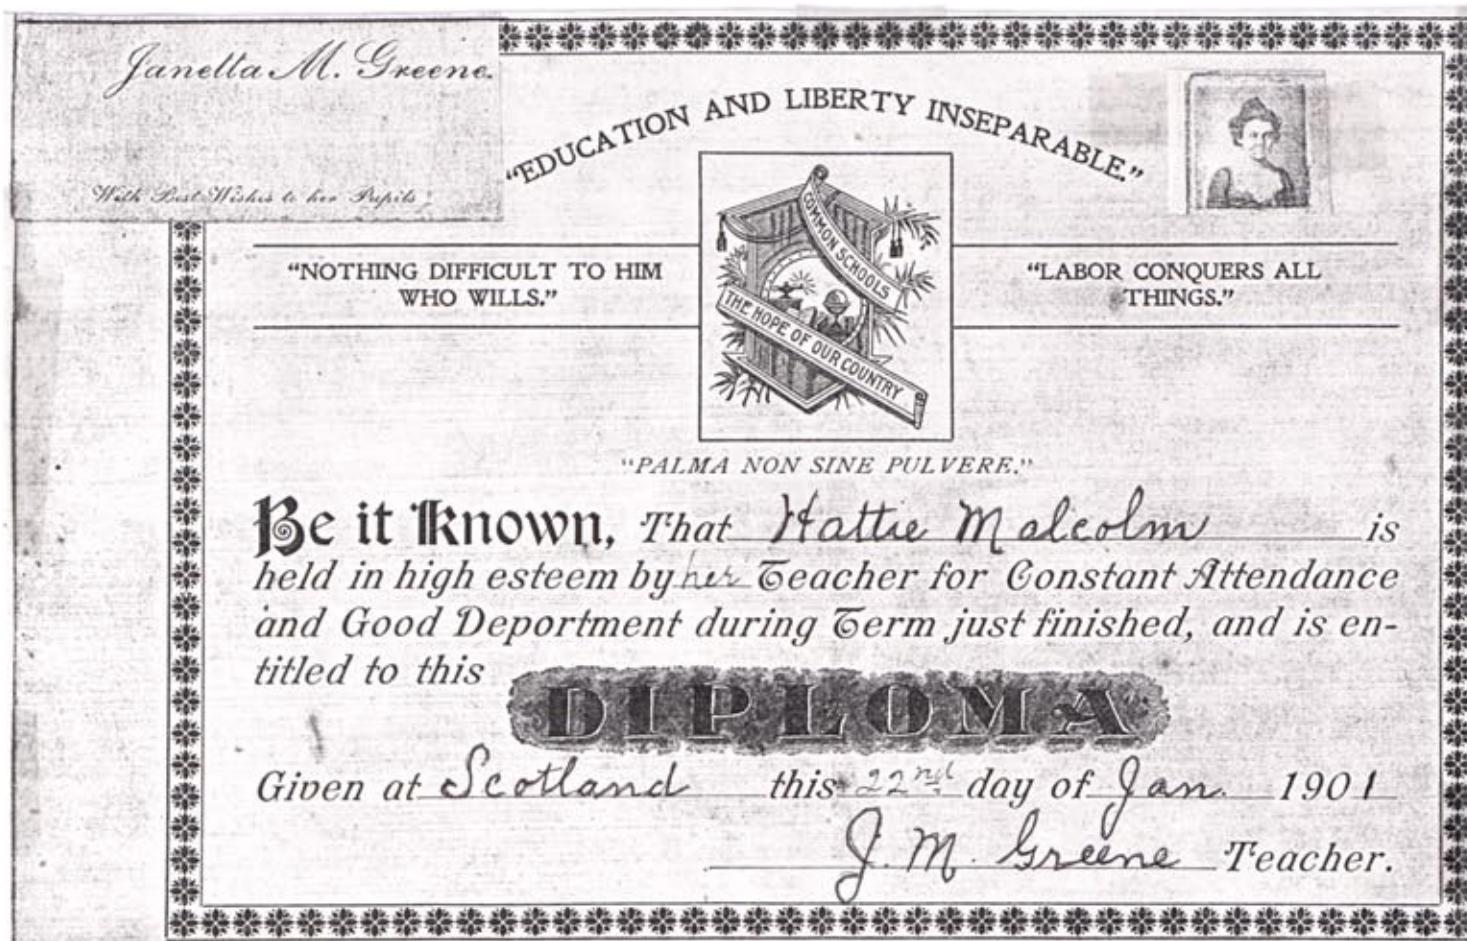 Janetta M. Greene.
With Best Wishes to her Pupils
"EDUCATION AND LIBERTY INSEPARABLE."
"NOTHING DIFFICULT TO HIM
WHO WILLS."
COMMON SCHOOLS
THE HOPE OF OUR COUNTRY
"LABOR CONQUERS ALL
THINGS."
"PALMA NON SINE PULVERE."
Be it Known, That Hattie Malcolm is
held in high esteem by her Teacher for Constant Attendance
and Good Deportment during Term just finished, and is en-
titled to this
DIPLOMA
Given at Scotland this 22nd day of Jan. 1901
J. M. Greene Teacher.